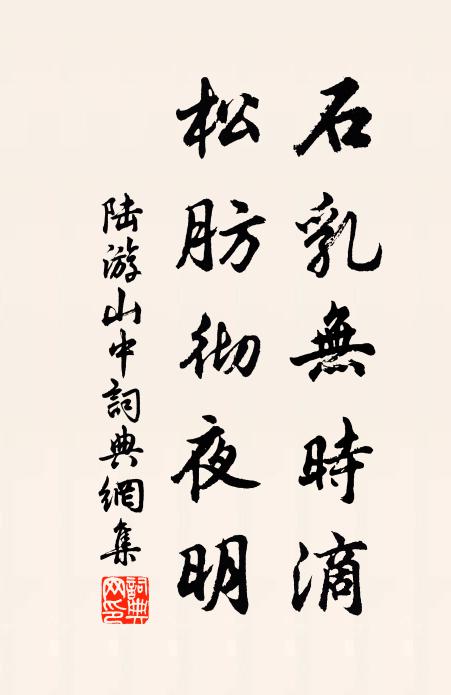 石乳無時滴
松肪彻夜明
陆游山中詞典網集
詞典网印